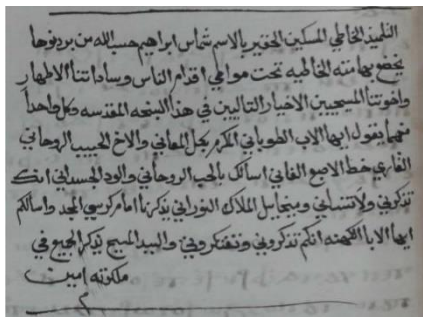 التلميذ الخاطي المسكين الحقير بالاسم شماس ابراهيم حسب الله من بردنوها
يخضع بهامته الخاطيه تحت مواطي اقدام الناس وساداتنا الاطهار
واخوتنا المسيحيين الاخيار التاليين في هذا البنجه المقدسه وكل واحداً
منهما يقول ايها الاب الطوباني المكرم بكل المعاني والاخ الحبيب الروحاني
القاري خط الاصبع الفاني اسألك بالحب الروحاني والود الجسداني انك
تذكرني ولا تنساني وبنجايل الملاك النوراني بذكرنا امام كرسي المجد واسألكم
ايها الابا الكهنه انكم تذكروني وتفتكروني والسيد المسيح يذكر الجميع في
ملكوته امين